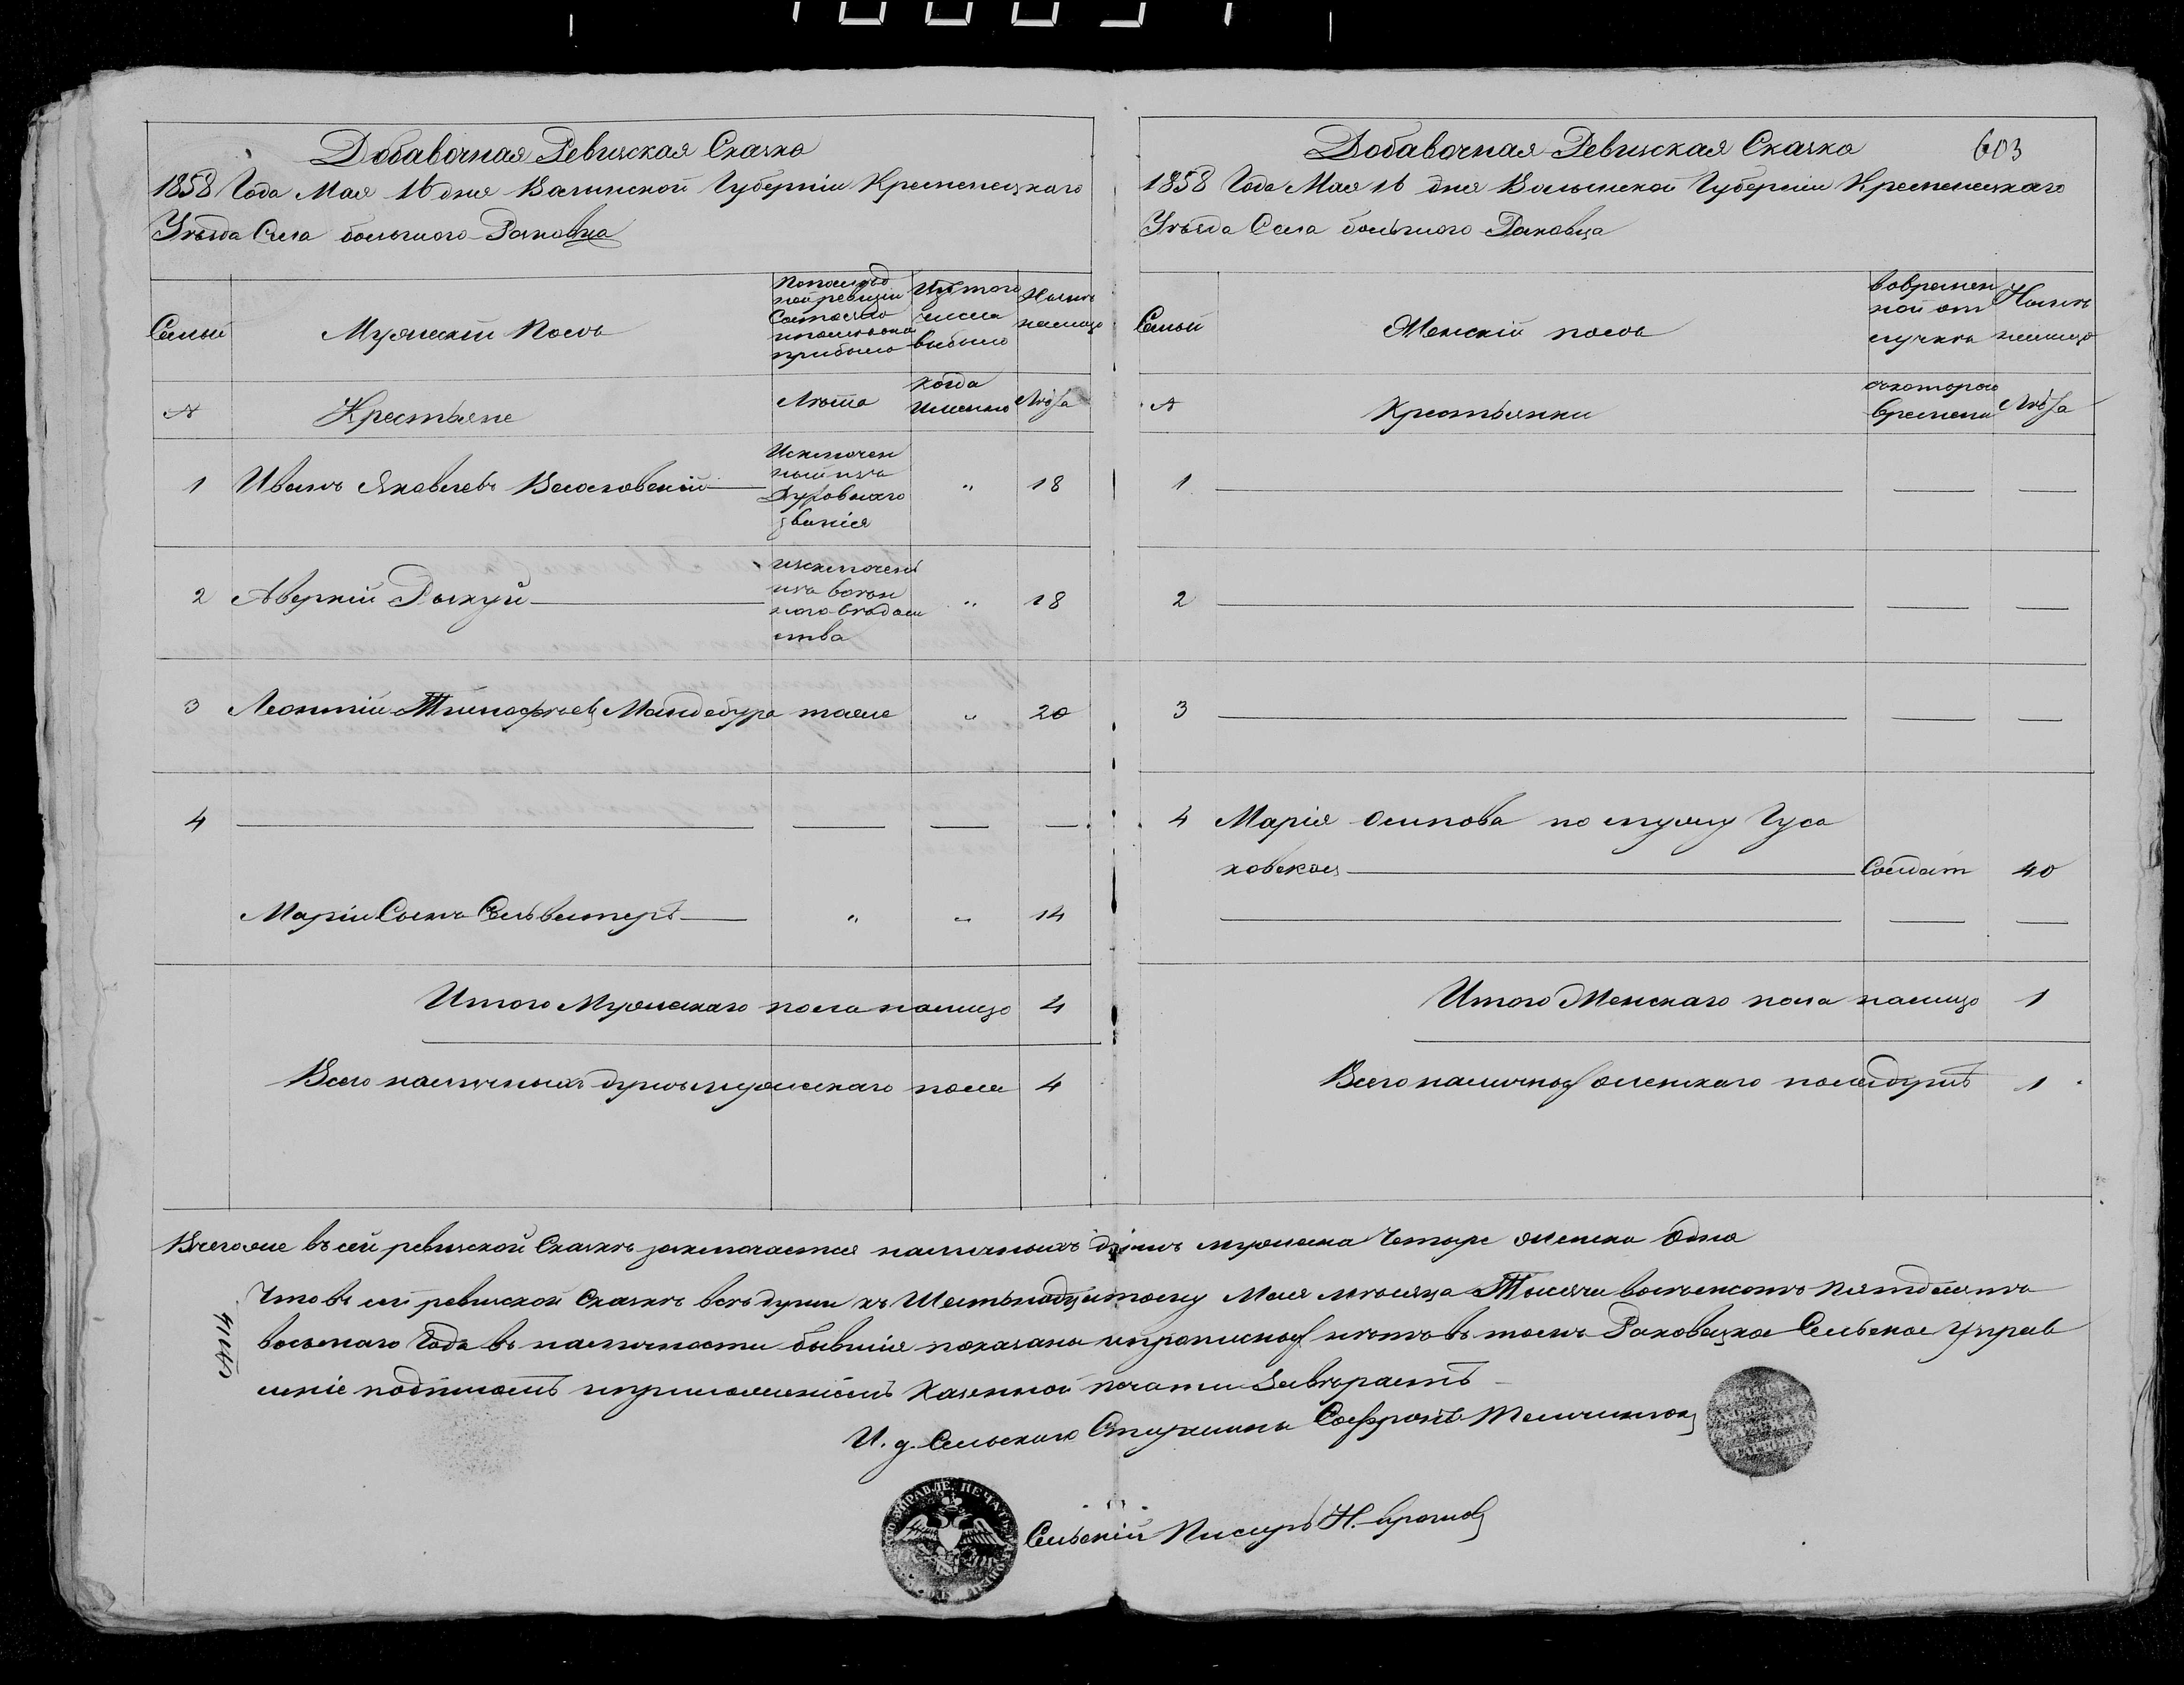 Добавочная Ревизская Сказка
1858 Года Мая 16 дня Волынской Губерніи Кременецкаго
Уѣзда Села большого Раковца
Семьи
Мужескій Полъ
По послѣд
ней ревизіи
Состояло
и послѣ того
прибыло
Изъ того
числа
выбыло
Нынѣ
налицо
№
Крестьяне
Лѣта
Когда
Именно
Лѣта
1 Иванъ Яковлевъ Исключен
ный изъ
Духовнаго
званія " 18
2 Аверкій изключенъ
изъ воен
ного вѣдом
ства " 18
3 Леонтій Тимофѣевъ Мандебура тоже " 20
4
Маріи Сынъ Сельвестеръ " " 14
Итого Мужескаго пола налицо 4
Всего наличныхъ душъ мужескаго пола 4
Добавочная Ревизская Сказка 603
1858 Года Мая 16 дня Волынской Губерніи Кременецкаго
Уѣзда Села большого Раковца
Семьи
Женскій полъ
во времен
ной от
лучкѣ
Нынѣ
налицо
№
Крестьянки
съ котораго
времени
Лѣта
1
2
3
4 Марія Осипова по мужу Гуса
ковская Солдат 40
Итого Женскаго пола налицо 1
Всего наличной женскаго пола душъ 1
Всегоже въ сей ревизской Сказкѣ заключается наличныхъ душъ мужеска Четыре женска Одна
Что въ сей ревизской Сказкѣ всѣ души къ Шестьнадцатому Мая мѣсяца Тысяча восемсотъ Пятдесятъ
восьмаго Года въ наличности бывшія показаны и прописной нѣтъ въ томъ Раковецкое Сельское Управ
леніе подписомъ и приложеніемъ Казенной печати Завѣряетъ
И. д. Сельскаго Старшины Софронъ
Сельскій Писарь Н.